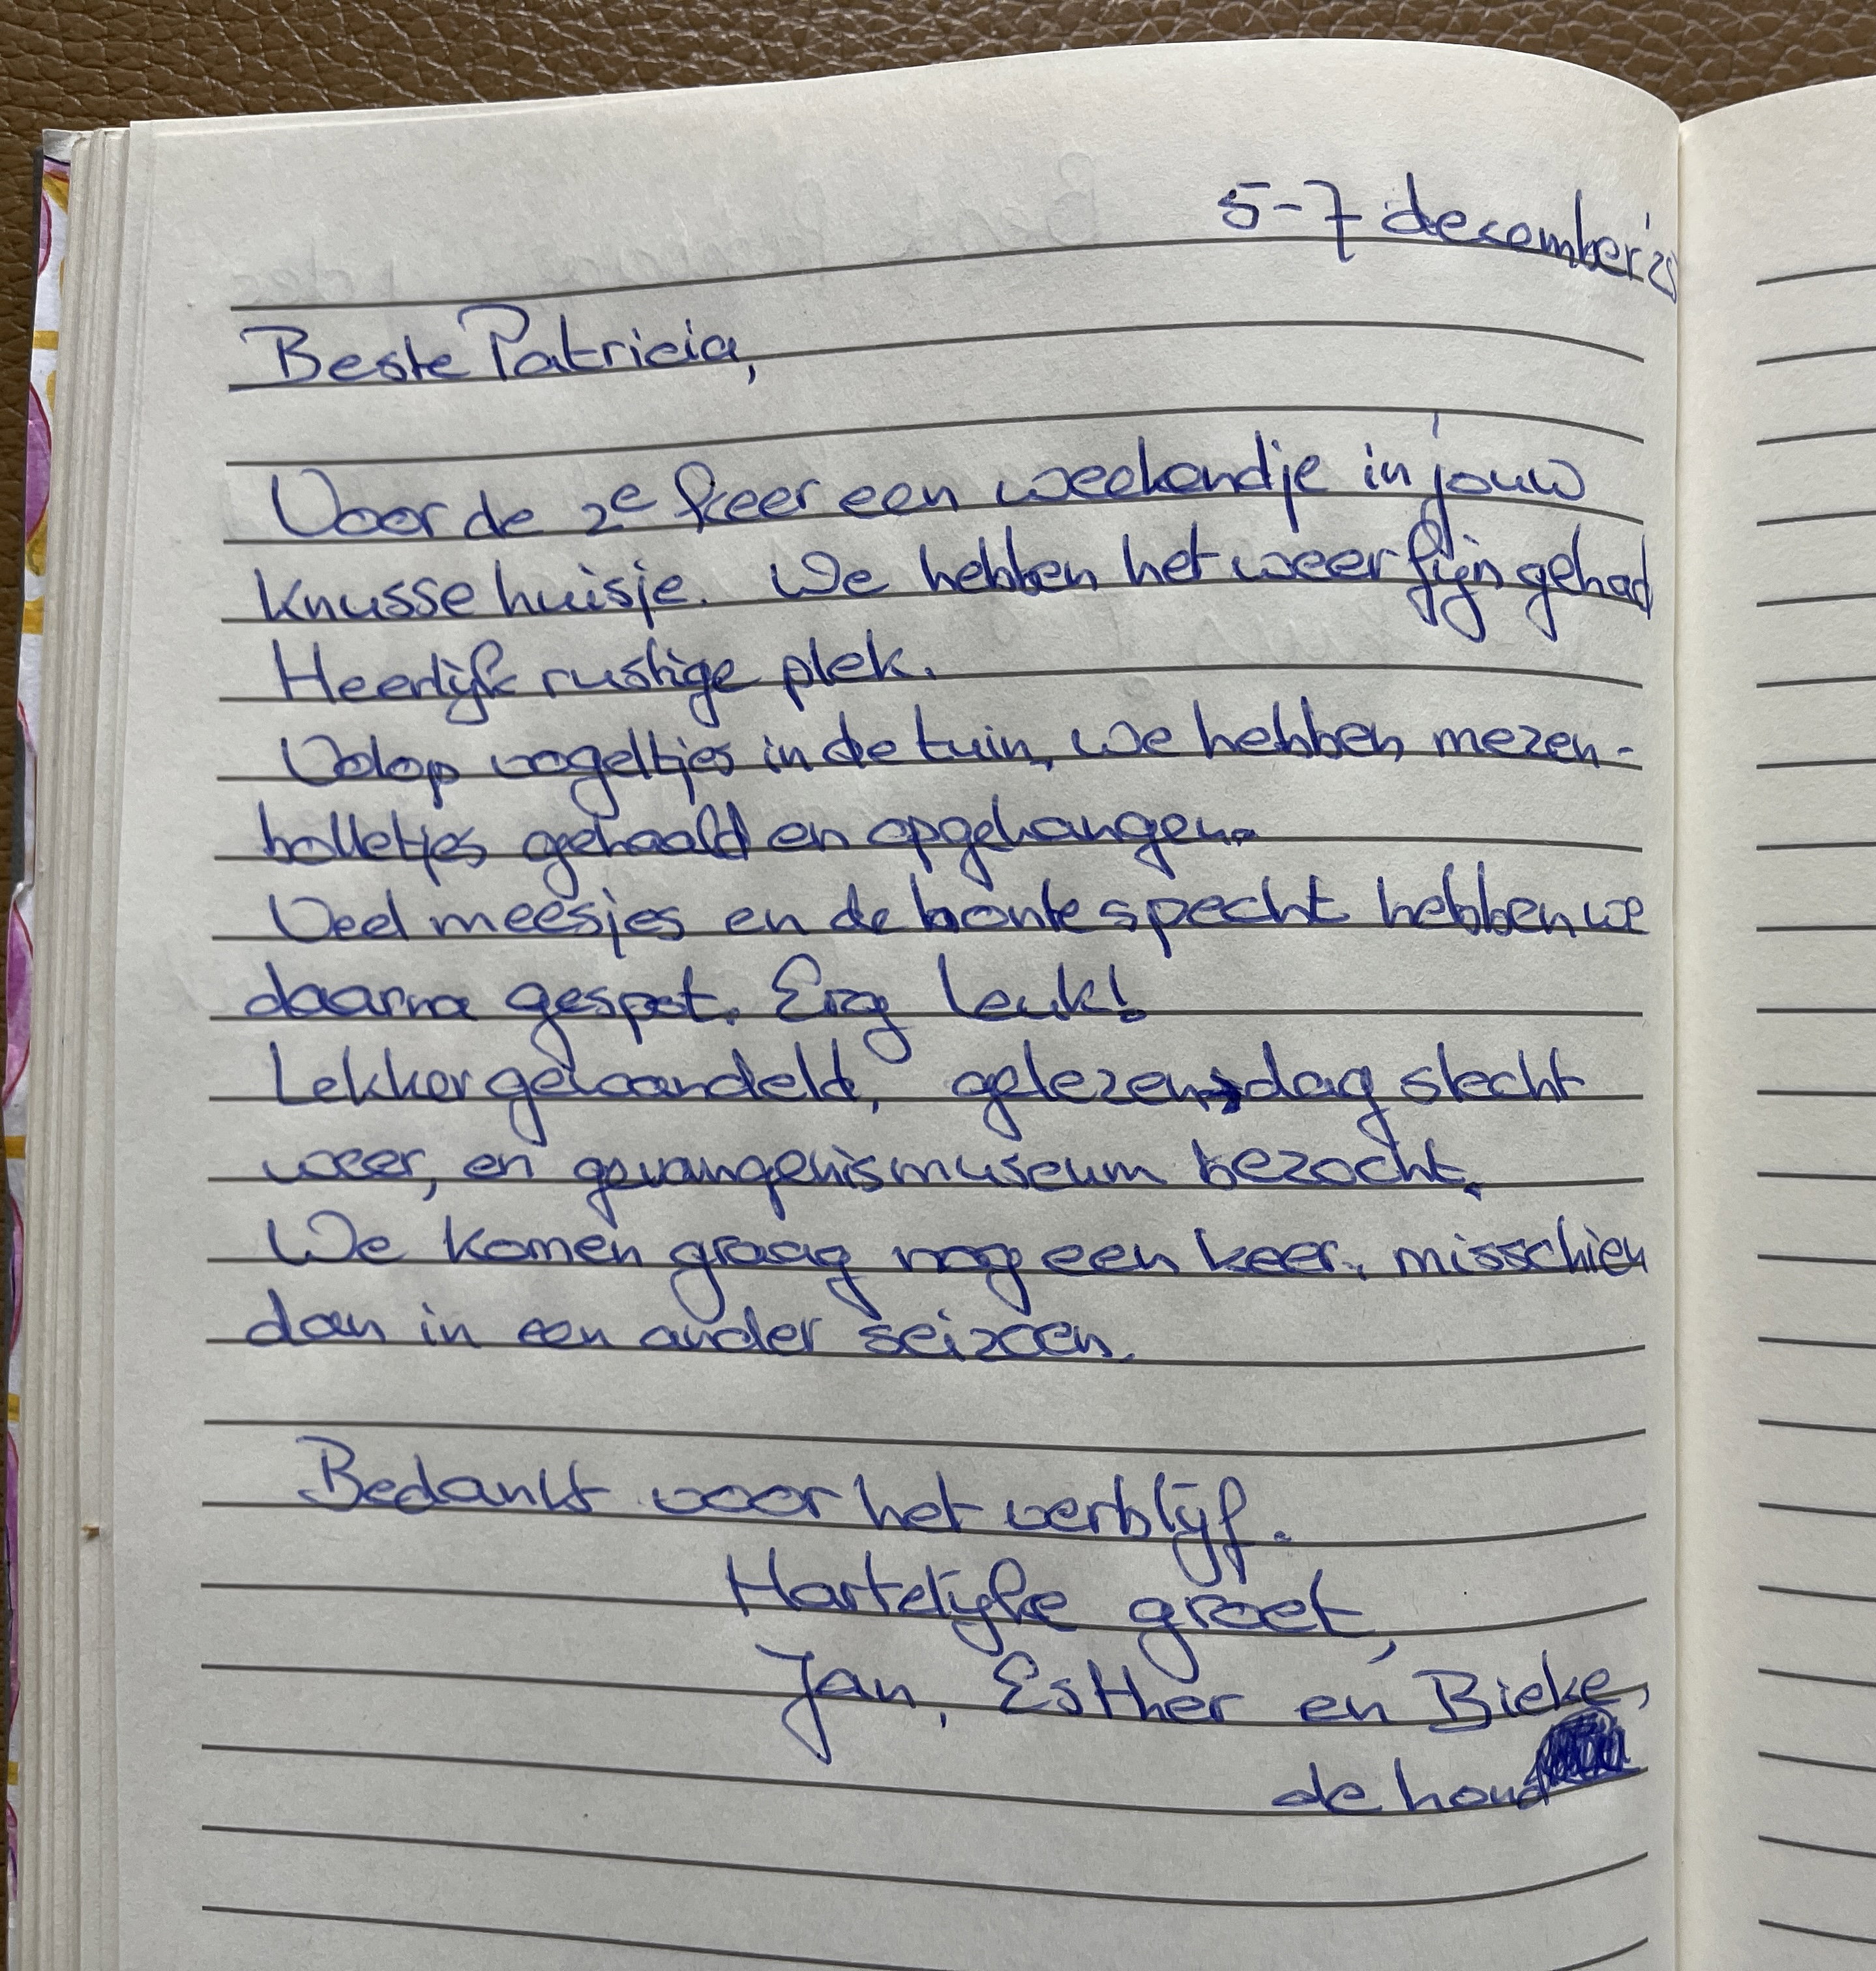 5-7 december '25
Beste Patricia,
Voor de 2e keer een weekendje in jouw
knusse huisje. We hebben het weer fijn gehad
Heerlijk rustige plek.
Volop vogeltjes in de tuin, we hebben mezen-
bolletjes gehaald en opgehangen.
Veel meesjes en de bonte specht hebben we
daarna gespot. Erg leuk!
Lekker gewandeld, gelezen, dag slecht
weer, en gevangenismuseum bezocht.
We komen graag nog een keer, misschien
dan in een ander seizoen.
Bedankt voor het verblijf.
Hartelijke groet,
Jan, Esther en Bieke,
de hond